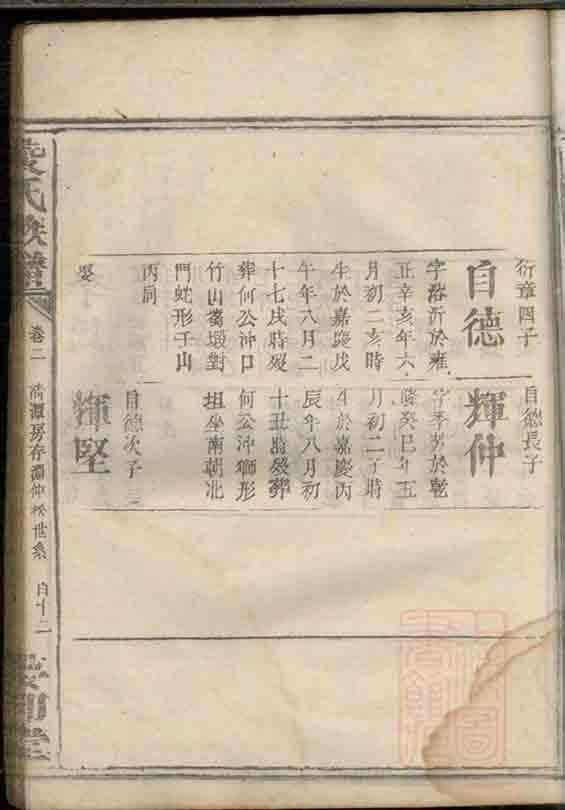 衍章四子
自德
字浴沂於雍
正辛亥年六
月初二亥時
生於嘉慶戊
午年八月二
十七戌時歿
葬何公沖口
竹山窩塅對
門蛇形子山
丙向
娶
自德長子
輝仲
字季芳於乾
隆癸巳年五
月初二子時
生於嘉慶丙
辰年八月初
十丑時歿葬
何公沖獅形
坦坐南朝北
自德次子
輝堅
氏族譜
卷二
清潭房存淵仲
世系
自十二